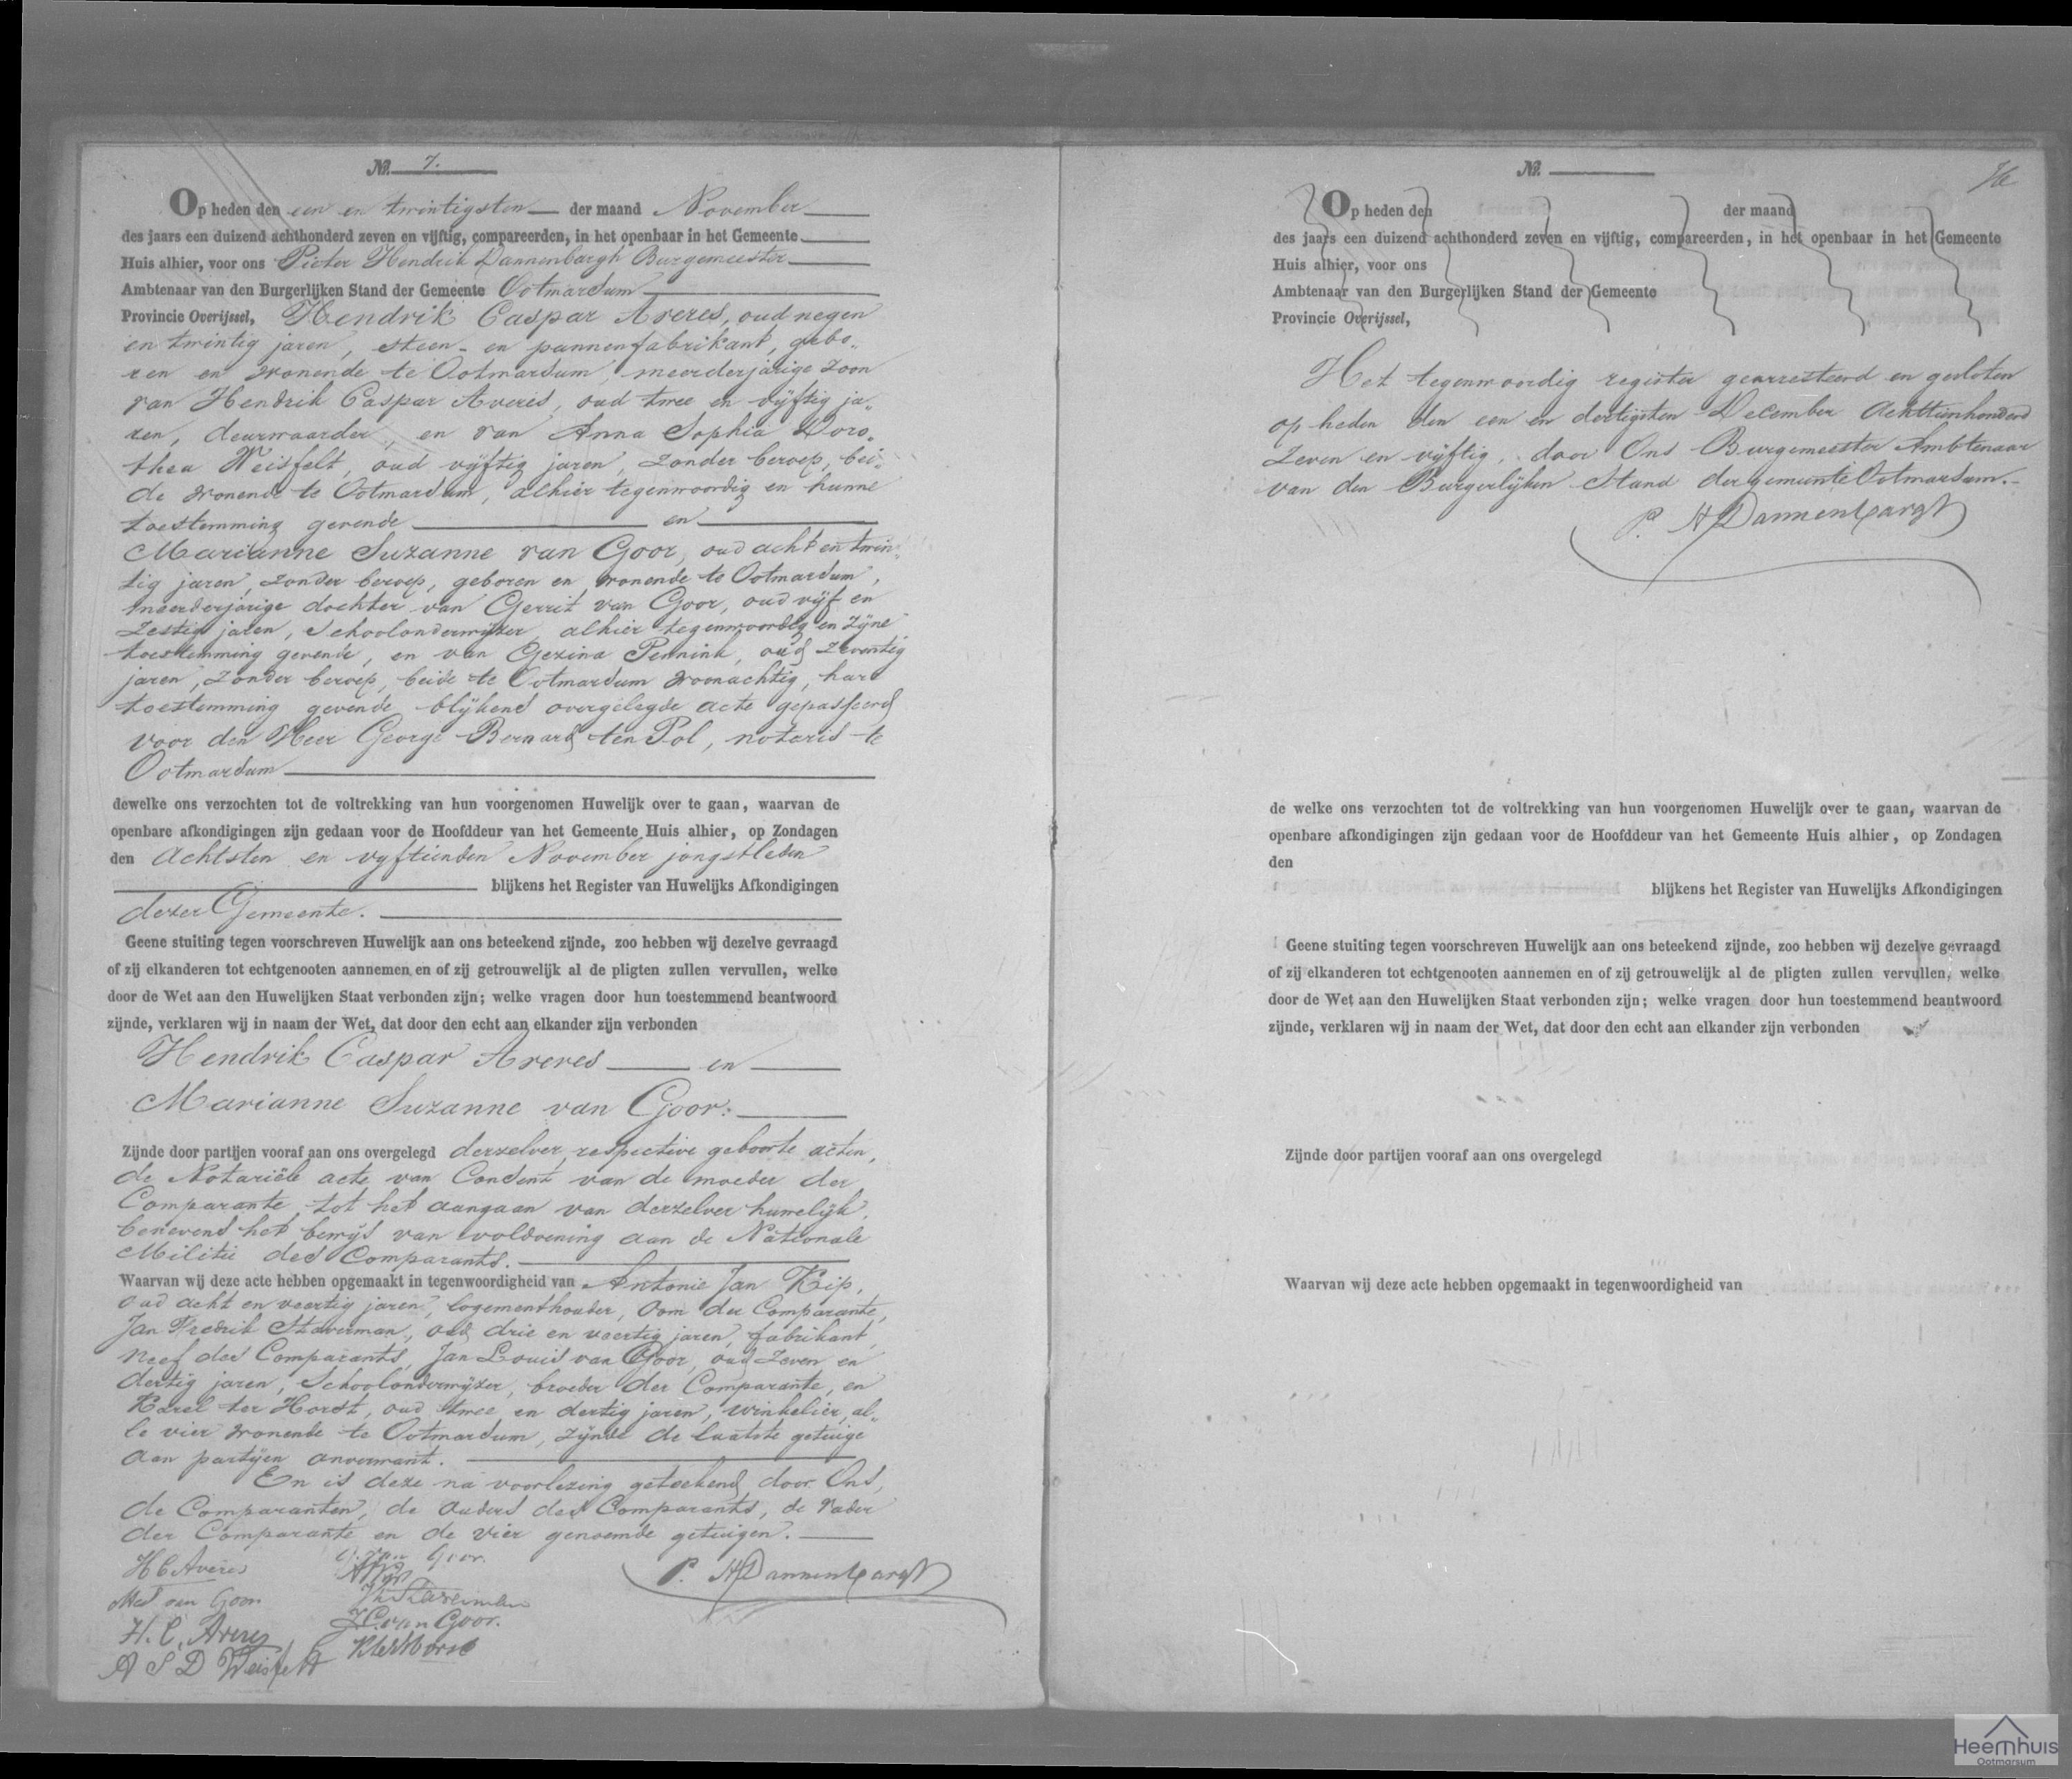 No. 7.
Op heden den een en twintigsten der maand November
des jaars een duizend achthonderd zeven en vijftig, compareerden, in het openbaar in het Gemeente
Huis alhier, voor ons Pieter Hendrik Dannenbargh Burgemeester
Ambtenaar van den Burgerlijken Stand der Gemeente Ootmarsum
Provincie Overijssel, Hendrik Caspar Averes, oud negen
en twintig jaren, steen- en pannenfabrikant, gebo„
ren en wonende te Ootmarsum, meerderjarige zoon
van Hendrik Caspar Averes, oud twee en vijftig ja„
ren, deurwaarder, en van Anna Sophia Doro„
thea Weisfelt, oud vijftig jaren, zonder beroep, bei„
de wonende te Ootmarsum, alhier tegenwoordig en hunne
toestemming gevende en
Marianne Suzanne van Goor, oud acht en twin„
tig jaren, zonder beroep, geboren en wonende te Ootmarsum,
meerderjarige dochter van Gerrit van Goor, oud vijf en
zestig jaren, Schoolonderwijzer, alhier tegenwoordig en zijne
toestemming gevende, en van Gezina Pennink, oud zeventig
jaren, zonder beroep, beide te Ootmarsum woonachtig, hare
toestemming gevende blijkens overgelegde acte gepasseerd
voor den Heer George Bernard ten Pol, notaris te
Ootmarsum
dewelke ons verzochten tot de voltrekking van hun voorgenomen Huwelijk over te gaan, waarvan de
openbare afkondigingen zijn gedaan voor de Hoofddeur van het Gemeente Huis alhier, op Zondagen
den Achtsten en vyftienden November jongstleden
blijkens het Register van Huwelijks Afkondigingen
dezer Gemeente.
Geene stuiting tegen voorschreven Huwelijk aan ons beteekend zijnde, zoo hebben wij dezelve gevraagd
of zij elkanderen tot echtgenooten aannemen en of zij getrouwelijk al de pligten zullen vervullen, welke
door de Wet aan den Huwelijken Staat verbonden zijn; welke vragen door hun toestemmend beantwoord
zijnde, verklaren wij in naam der Wet, dat door den echt aan elkander zijn verbonden
Hendrik Caspar Averes en
Marianne Suzanne van Goor.
Zijnde door partijen vooraf aan ons overgelegd derzelver respective geboorte acten,
de Notariële acte van Consent van de moeder der
Comparante tot het aangaan van derzelver huwelijk,
benevens het bewijs van voldoening aan de Nationale
Militie des Comparants.
Waarvan wij deze acte hebben opgemaakt in tegenwoordigheid van Antonie Jan Kip,
oud acht en veertig jaren, logementhouder, Oom der Comparante,
Jan Fredrik Staverman, oud drie en veertig jaren, fabrikant,
Neef des Comparants, Jan Louis van Goor, oud zeven en
dertig jaren, Schoolonderwijzer, broeder der Comparante, en
Karel ter Horst, oud twee en dertig jaren, winkelier, al„
le vier wonende te Ootmarsum, zijnde de laatste getuige
aan partijen onverwant.
En is deze na voorlezing geteekend door Ons,
de Comparanten, de ouders des Comparants, de vader
der Comparante en de vier genoemde getuigen.
H C Averes
G. van Goor.
P. H Dannenbargh
MS van Goor
AJ Kip
H. C. Averes
J. L. van Goor.
A S D Weisfelt
K ter Horst
No.
Op heden den der maand
des jaars een duizend achthonderd zeven en vijftig, compareerden, in het openbaar in het Gemeente
Huis alhier, voor ons
Ambtenaar van den Burgerlijken Stand der Gemeente
Provincie Overijssel,
Het tegenwoordig register gearresteerd en gesloten
op heden den een en dertigsten December Achttienhonderd
Zeven en vijftig, door Ons Burgemeester Ambtenaar
van den Burgerlijken Stand der gemeente Ootmarsum.
P. H Dannenbargh
de welke ons verzochten tot de voltrekking van hun voorgenomen Huwelijk over te gaan, waarvan de
openbare afkondigingen zijn gedaan voor de Hoofddeur van het Gemeente Huis alhier, op Zondagen
den
blijkens het Register van Huwelijks Afkondigingen
Geene stuiting tegen voorschreven Huwelijk aan ons beteekend zijnde, zoo hebben wij dezelve gevraagd
of zij elkanderen tot echtgenooten aannemen en of zij getrouwelijk al de pligten zullen vervullen, welke
door de Wet aan den Huwelijken Staat verbonden zijn; welke vragen door hun toestemmend beantwoord
zijnde, verklaren wij in naam der Wet, dat door den echt aan elkander zijn verbonden
Zijnde door partijen vooraf aan ons overgelegd
Waarvan wij deze acte hebben opgemaakt in tegenwoordigheid van
Heemhuis
Ootmarsum